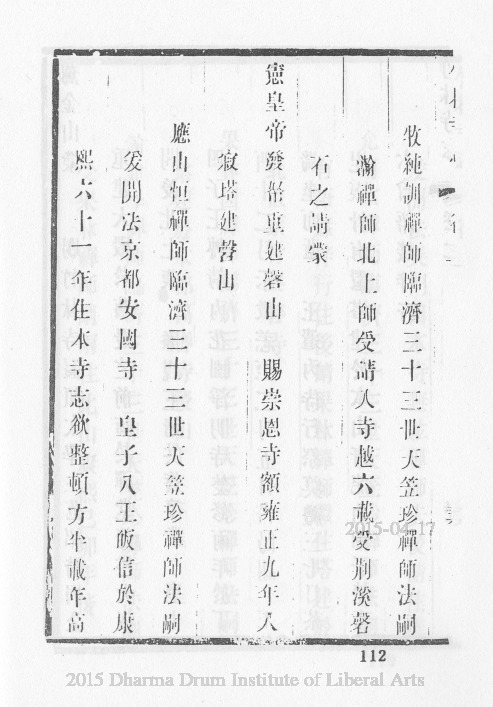 牧純訓禪師臨濟三十三世天笠珍禪師法嗣
瀚禪師北上師受請入寺越六載受荆溪磬
石之請業
憲皇帝發帑重建磬山　賜崇恩寺額雍正九年入
寂塔建磬山
應山恒禪師臨濟三十三世天笠珍禪師法嗣
爰開法京都安國寺　皇子八王皈信於康
熙六十一年住本寺志欲整頓方半載年高
112
2015-04-17
2015 Dharma Drum Institute of Liberal Arts